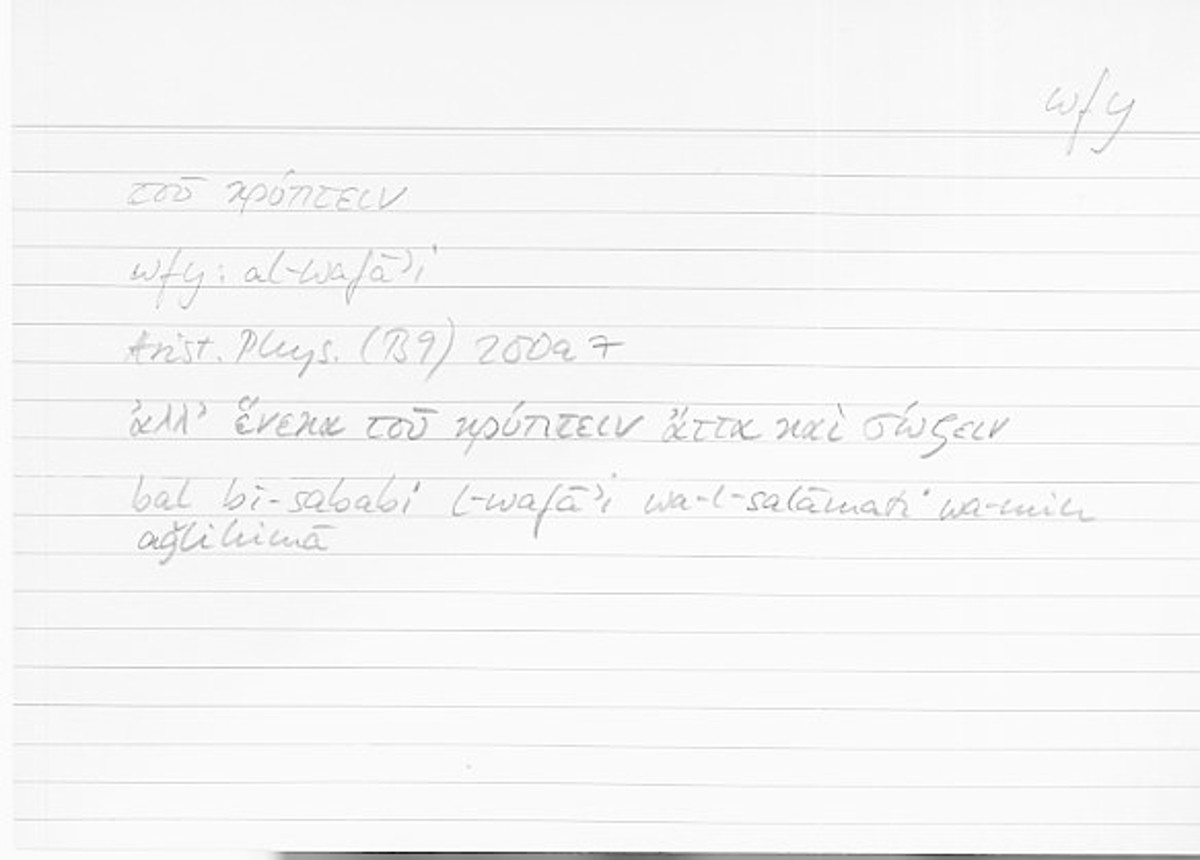 wfy
τοῦ κρύπτειν
wfy: al-wafāʾi
Arist. Phys. (B9) 200a7
ἀλλ’ ἕνεκα τοῦ κρύπτειν ἄττα καὶ σῴζειν
bal bi-sababi l-wafāʾi wa-l-salāmati wa-min
aǧlihimā